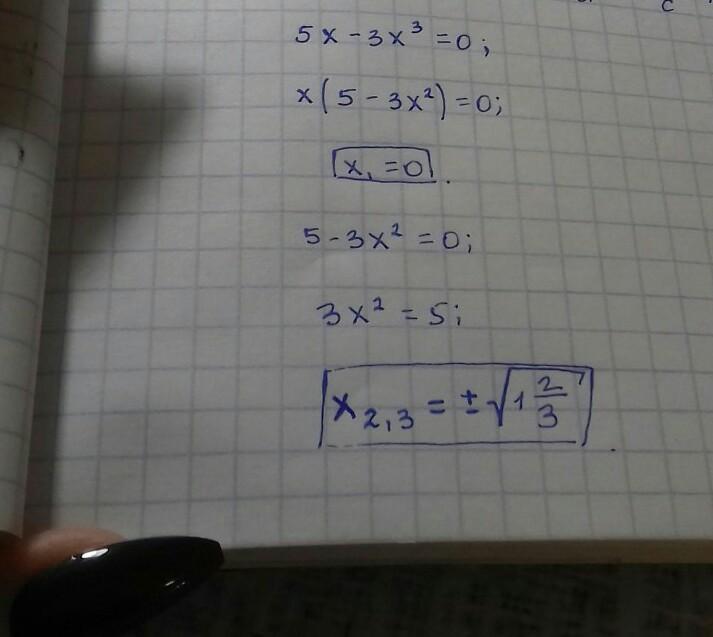 5x - 3x³ = 0;
x(5 - 3x²) = 0;
x₁ = 0.
5 - 3x² = 0;
3x² = 5;
x₂,₃ = ±√(1 2/3).